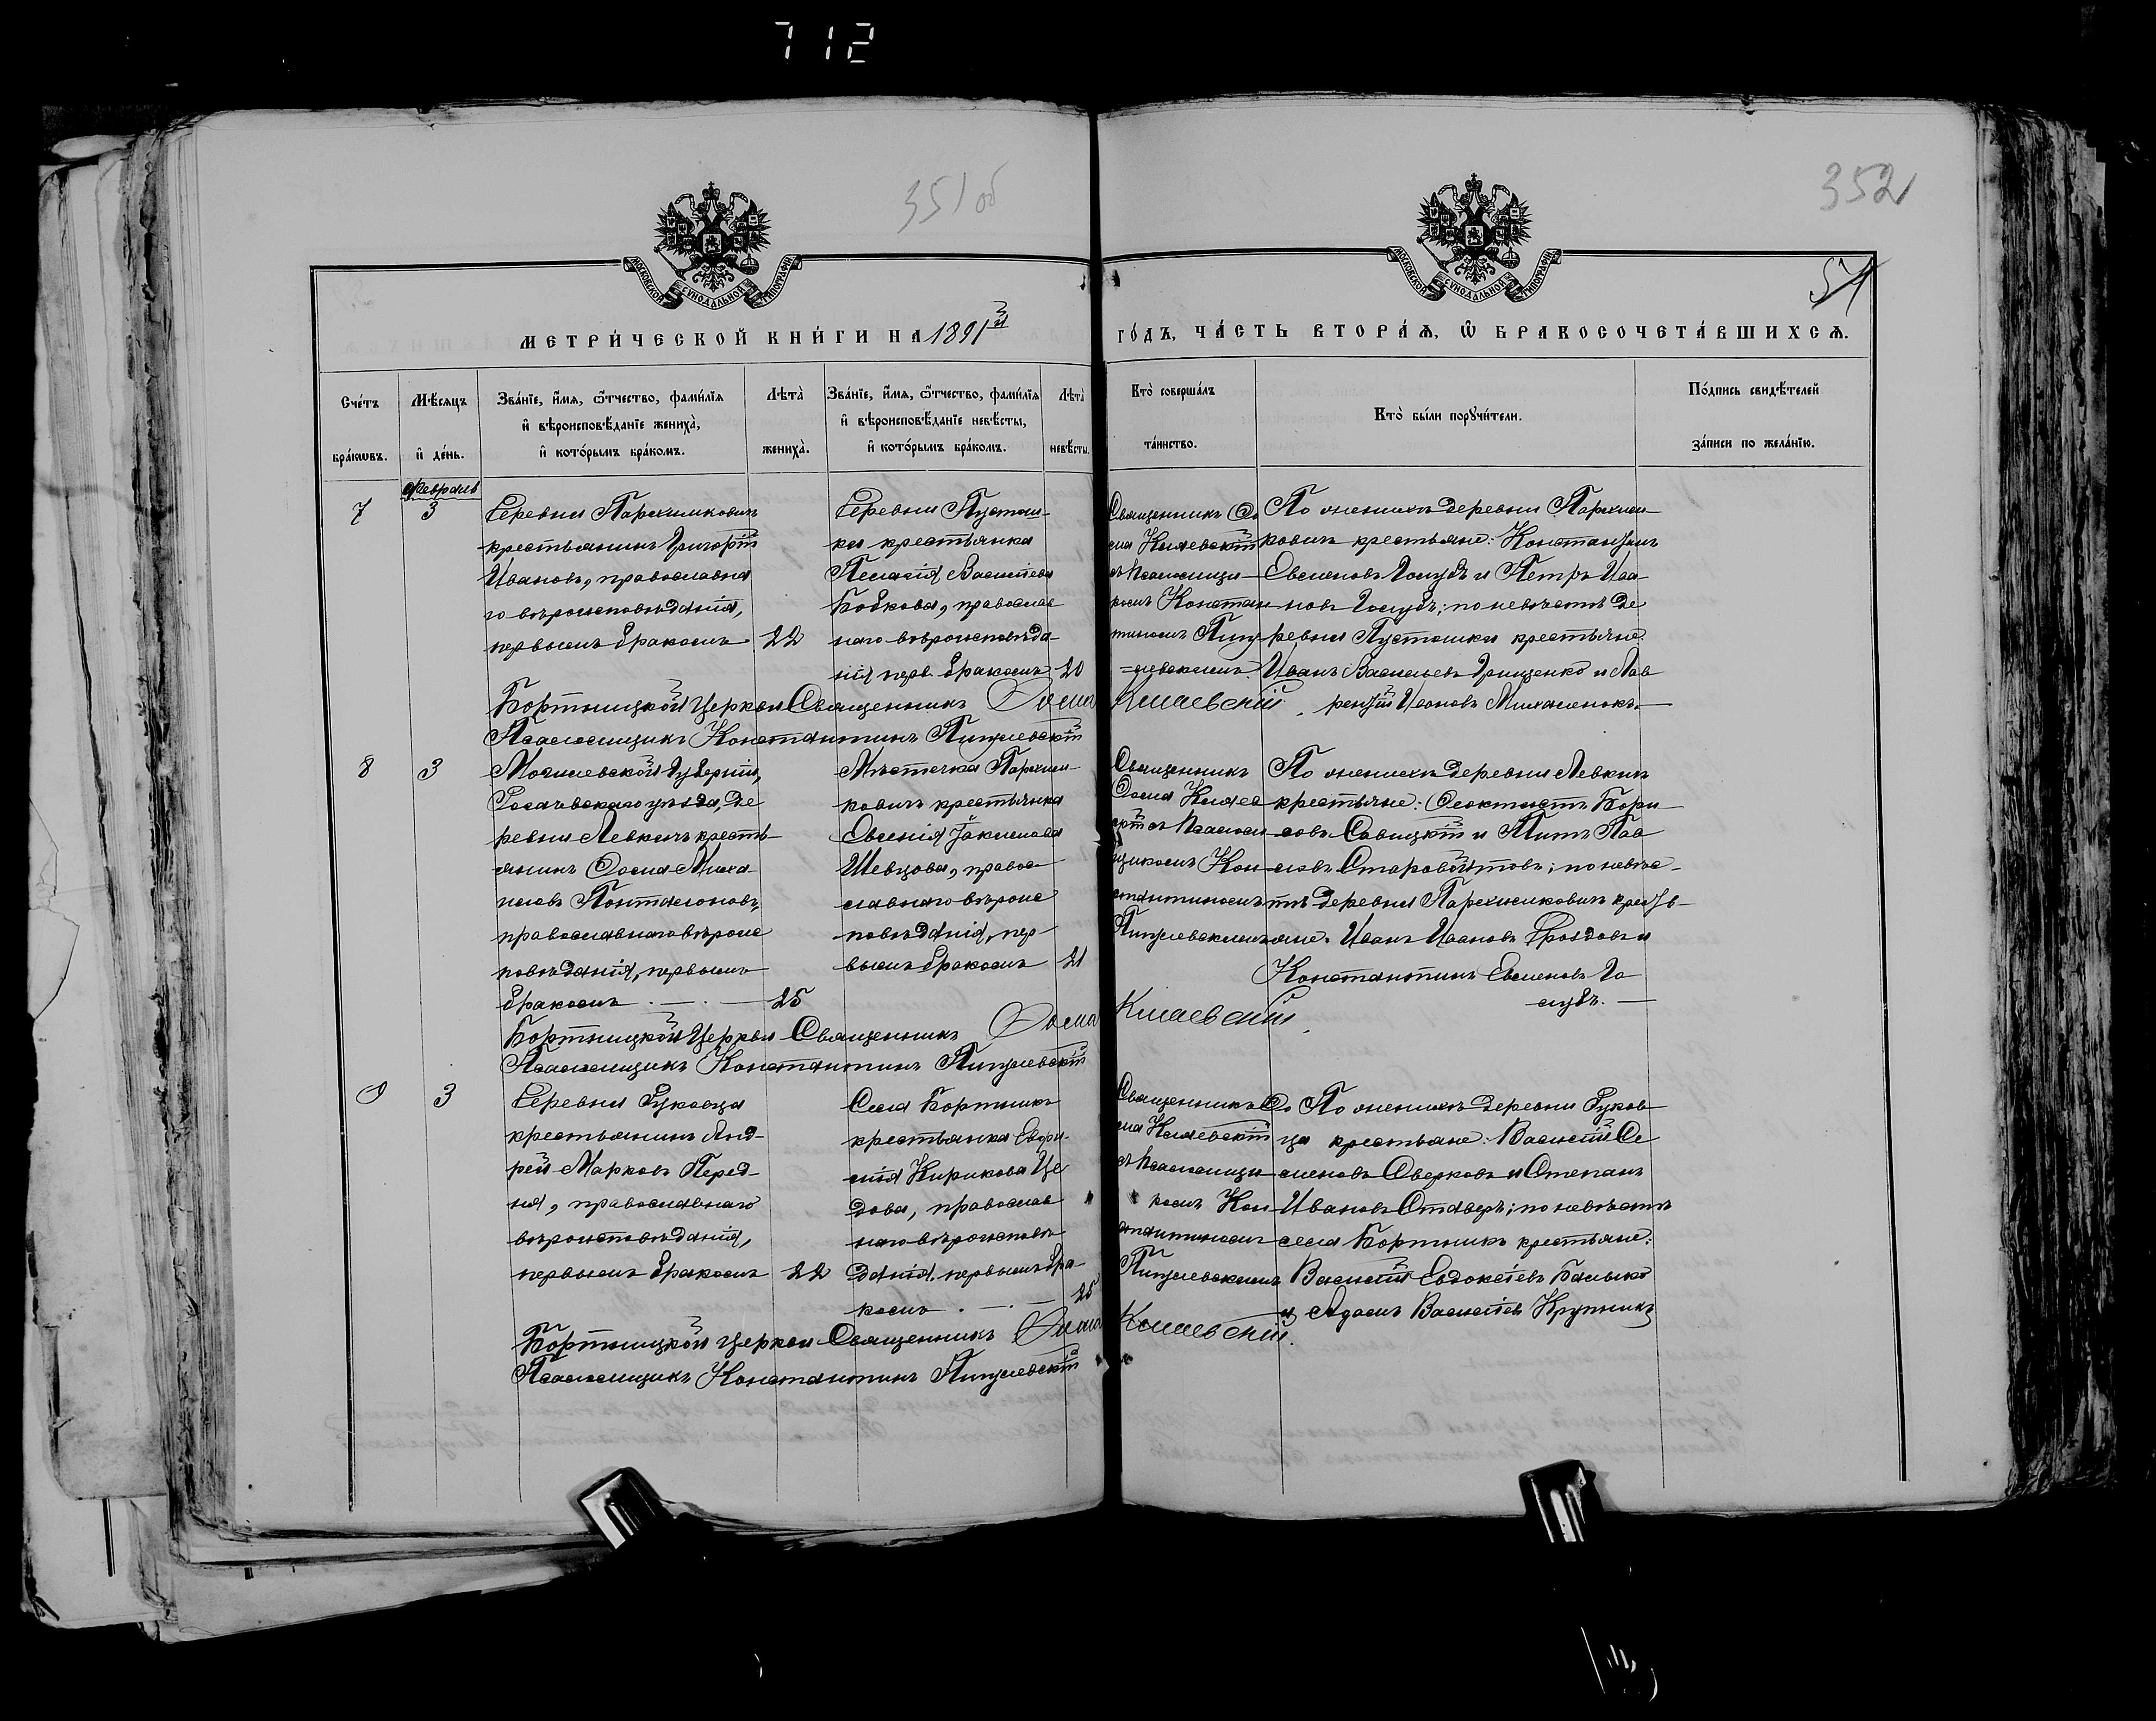 712
351 об
352
51
МОСКОВСКОЙ СѴНОДАЛЬНОЙ ТИПОГРАФІИ
МОСКОВСКОЙ СѴНОДАЛЬНОЙ ТИПОГРАФІИ
МЕТРИ́ЧЕСКОЙ КНИ́ГИ НА 1891й ГО́ДЪ, ЧА́СТЬ ВТОРА́Ѧ, Ѿ БРАКОСОЧЕТА́ВШИХСѦ.
Сче́тъ бра́кѡвъ.
Мѣ́сяцъ и҆ де́нь.
Зва́нїе, и҆́мѧ, ѻ҆́тчество, фами́лїѧ
и҆ вѣроисповѣ́данїе жениха̀,
и҆ кото́рымъ бра́комъ.
Лѣта̀ жениха̀.
Зва́нїе, и҆́мѧ, ѻ҆́тчество, фами́лїѧ
и҆ вѣроисповѣ́данїе невѣ́сты,
и҆ кото́рымъ бра́комъ.
Лѣта̀ невѣ́сты.
Кто̀ соверша́лъ та́инство.
Кто̀ бы́ли порꙋчи́тели.
По́дпись свидѣ́телей за́писи по жела́нїю.
Февраль
7
3
Деревни Пархимковичъ
крестьянинъ Григорій
Ивановъ, православна
го вѣроисповѣданія,
первымъ бракомъ
22
Деревни Пустош-
ки крестьянка
Пелагія Васильева
Бобкова, православ
наго вѣроисповѣда-
нія перв. бракомъ
20
Священникъ Ѳо
ма Кмаевскій
съ псаломщи-
комъ Констан
тиномъ
По женихѣ деревни Пархим-
ковичъ крестьяне: Константинъ
Евменовъ Голубъ и Петръ Ива-
новъ Голубъ; по невѣстѣ де
ревни Пустошки крестьяне
Иванъ Васильевъ Грищенко и Лав
рентій Ивановъ
Бортницкой Церкви Священникъ Ѳома Кмаевскій
Псаломщикъ Константинъ
8
3
Могилевской губерніи,
Рогачевскаго уѣзда, де
ревни Левкичъ кресть-
янинъ Ѳома Миха
иловъ
православнаго вѣроис
повѣданія, первымъ
бракомъ
25
Мѣстечка Пархим-
ковичъ крестьянка
Евгенія Іакимова
Шевцова, правос
лавнаго вѣроис
повѣданія, пер-
вымъ бракомъ
21
Священникъ
Ѳома Кмаев
скій съ псалом
щикомъ Кон
стантиномъ
По женихѣ деревни Левкичъ
крестьяне: Ѳеоктистъ Бори-
совъ Савицкій и Титъ Пав
ловъ Старовойтовъ; по невѣс-
тѣ деревни Пархимковичъ кресть-
яне. Иванъ Ивановъ Дроздовъ и
Константинъ Евменовъ Го
лубъ.
Бортницкой Церкви Священникъ Ѳома Кмаевскій
Псаломщикъ Константинъ
9
3
Деревни Буковца
крестьянинъ Анд-
рей Марковъ Перед-
ня, православнаго
вѣроисповѣданія,
первымъ бракомъ
22
Села Бортникъ
крестьянка
Кирикова
дова, православ
наго вѣроисповѣ
данія, первымъ бра-
комъ
25
Священникъ Ѳо
ма Кмаевскій
съ псаломщи-
комъ Кон
стантиномъ
По женихѣ деревни Буков
ца крестьяне: Василій Се
меновъ Сверковъ и Степанъ
Ивановъ; по невѣстѣ
села Бортникъ крестьяне:
Василій
и Адамъ Васильевъ Крупникъ
Бортницкой церкви Священникъ Ѳома Кмаевскій
Псаломщикъ Константинъ